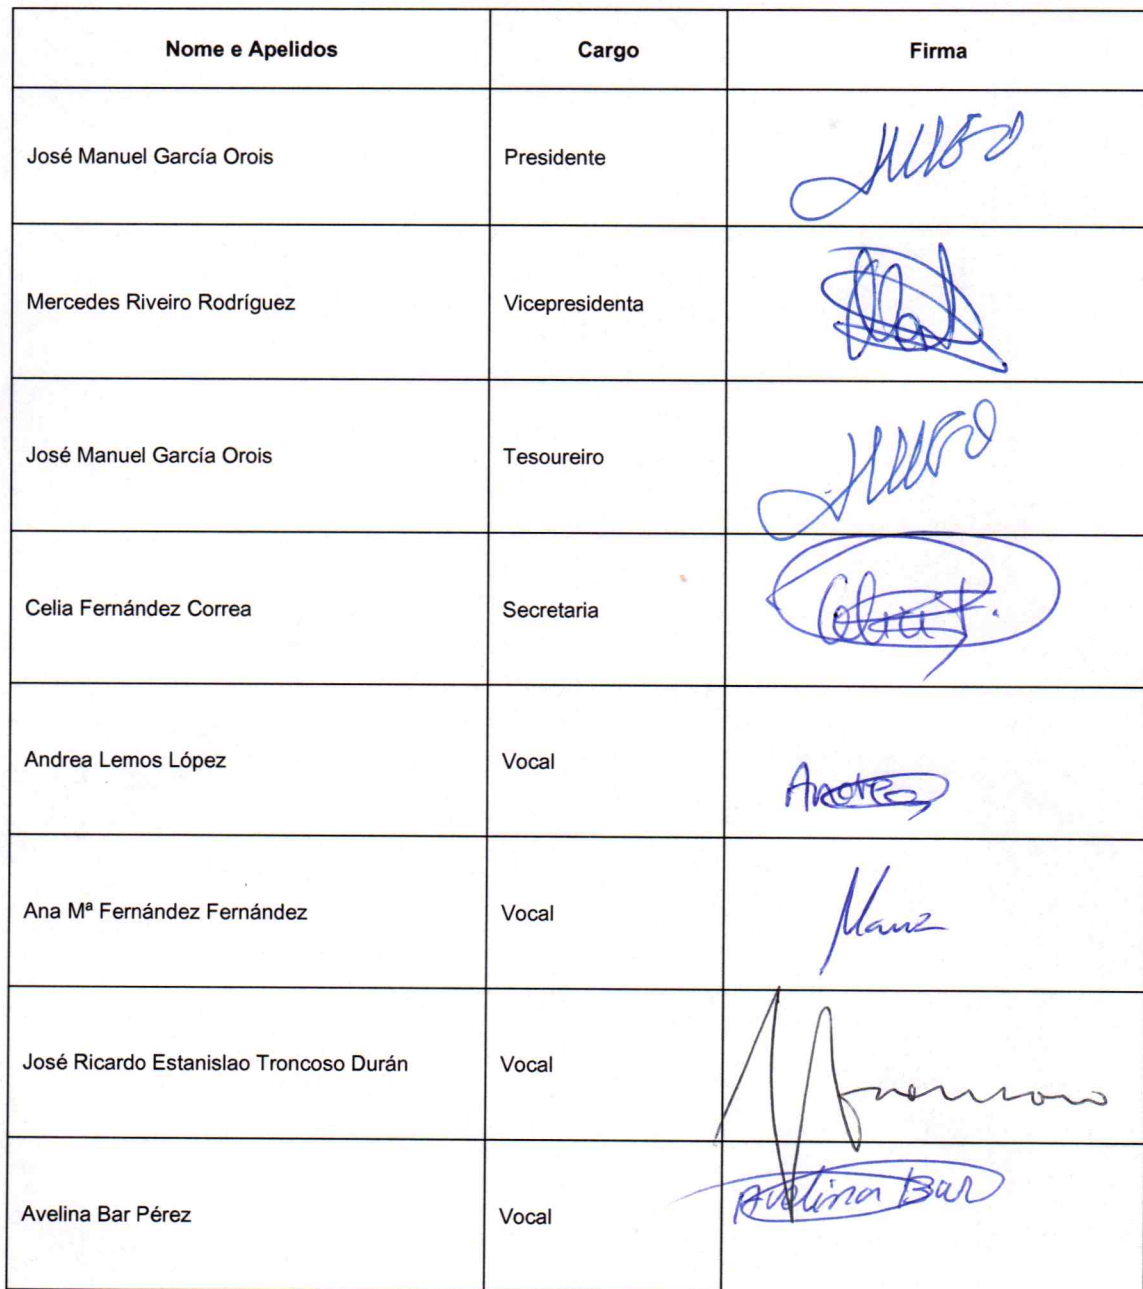 Nome e Apelidos Cargo Firma
José Manuel García Orois Presidente
Mercedes Riveiro Rodríguez Vicepresidenta
José Manuel García Orois Tesoureiro
Celia Fernández Correa Secretaria
Andrea Lemos López Vocal Andrea
Ana Mª Fernández Fernández Vocal
José Ricardo Estanislao Troncoso Durán Vocal
Avelina Bar Pérez Vocal Avelina Bar